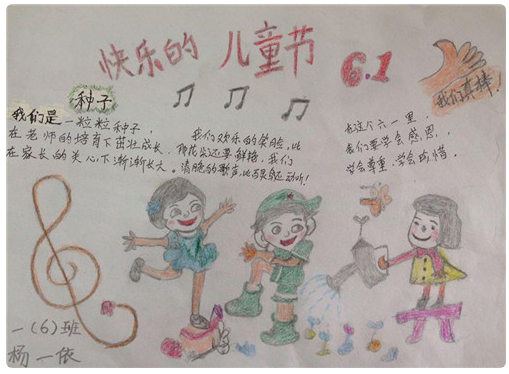 快乐的 儿童节
6.1
我们真棒！
种子
我们是一粒粒种子，
在老师的培育下茁壮成长，
在家长的关心下渐渐长大。
我们欢乐的笑脸，比
花朵还要鲜艳，我们
清脆的歌声，比 还动听！
在这个六一里，
我们要学会感恩，
学会尊重，学会珍惜。
一（6）班
杨一依